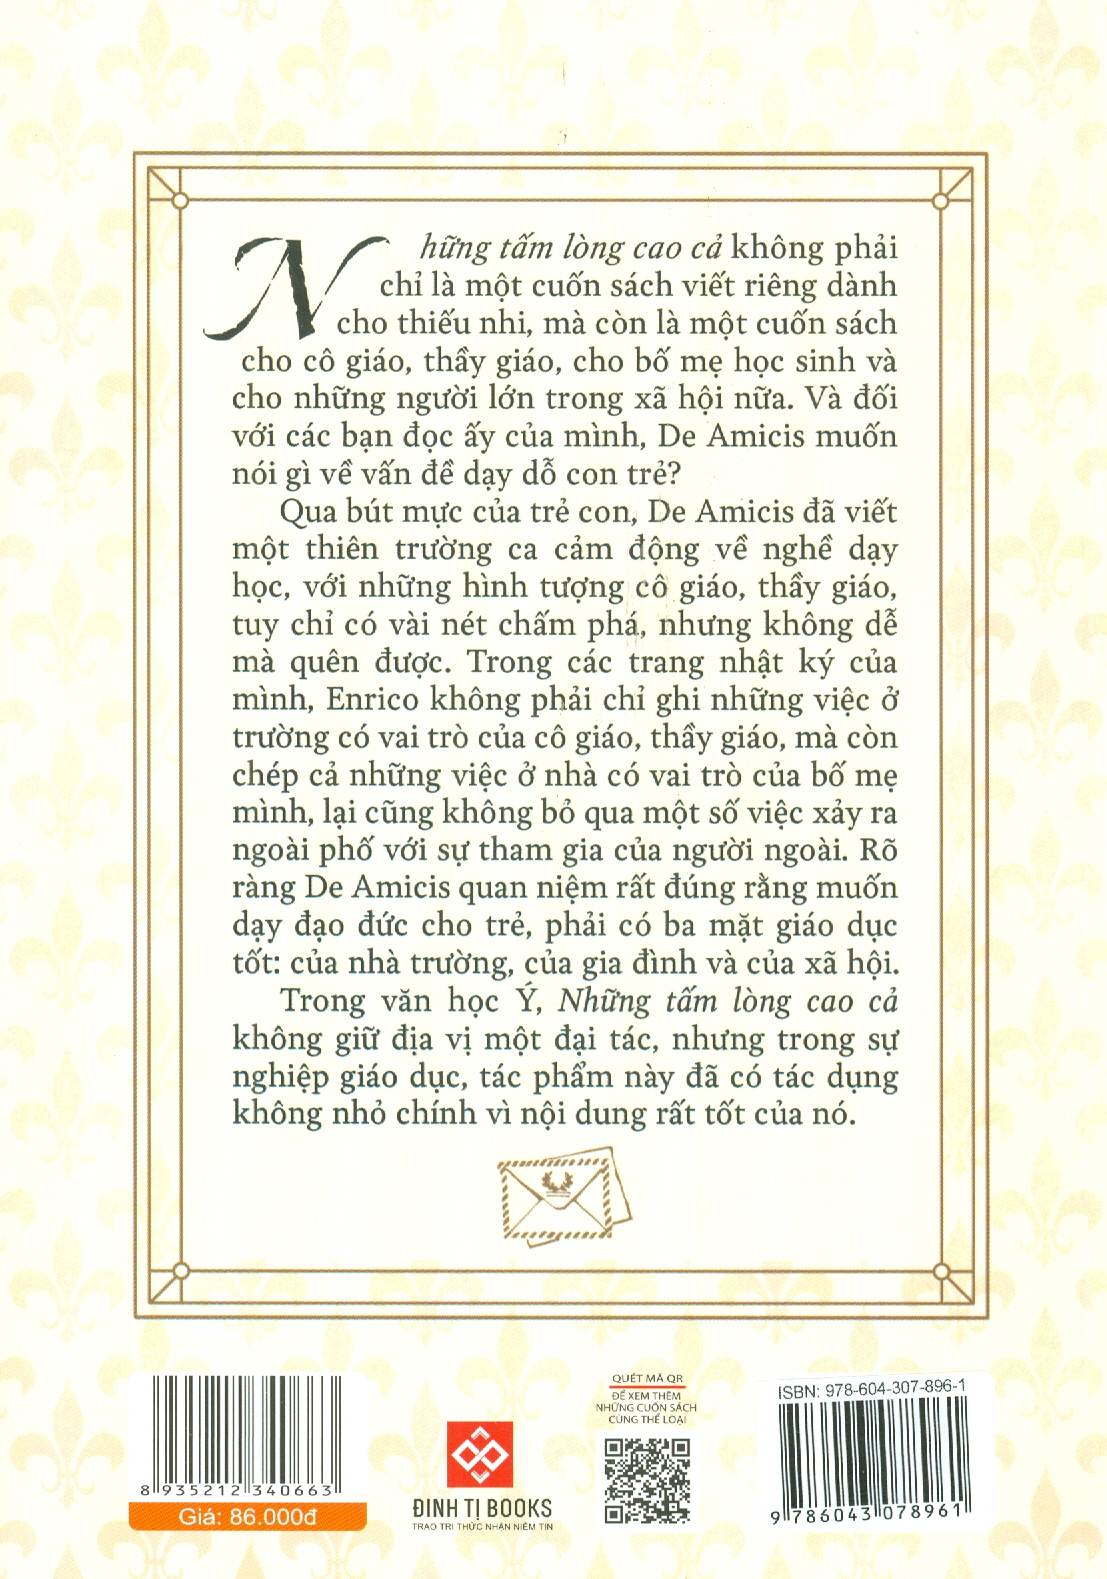 Những tấm lòng cao cả không phải
chỉ là một cuốn sách viết riêng dành
cho thiếu nhi, mà còn là một cuốn sách
cho cô giáo, thầy giáo, cho bố mẹ học sinh và
cho những người lớn trong xã hội nữa. Và đối
với các bạn đọc ấy của mình, De Amicis muốn
nói gì về vấn đề dạy dỗ con trẻ?
Qua bút mực của trẻ con, De Amicis đã viết
một thiên trường ca cảm động về nghề dạy
học, với những hình tượng cô giáo, thầy giáo,
tuy chỉ có vài nét chấm phá, nhưng không dễ
mà quên được. Trong các trang nhật ký của
mình, Enrico không phải chỉ ghi những việc ở
trường có vai trò của cô giáo, thầy giáo, mà còn
chép cả những việc ở nhà có vai trò của bố mẹ
mình, lại cũng không bỏ qua một số việc xảy ra
ngoài phố với sự tham gia của người ngoài. Rõ
ràng De Amicis quan niệm rất đúng rằng muốn
dạy đạo đức cho trẻ, phải có ba mặt giáo dục
tốt: của nhà trường, của gia đình và của xã hội.
Trong văn học Ý, Những tấm lòng cao cả
không giữ địa vị một đại tác, nhưng trong sự
nghiệp giáo dục, tác phẩm này đã có tác dụng
không nhỏ chính vì nội dung rất tốt của nó.
8 935212 340663
Giá: 86.000đ
ĐINH TỊ BOOKS
TRAO TRI THỨC NHẬN NIỀM TIN
QUÉT MÃ QR
ĐỂ XEM THÊM
NHỮNG CUỐN SÁCH
CÙNG THỂ LOẠI
ISBN: 978-604-307-896-1
9 786043 078961